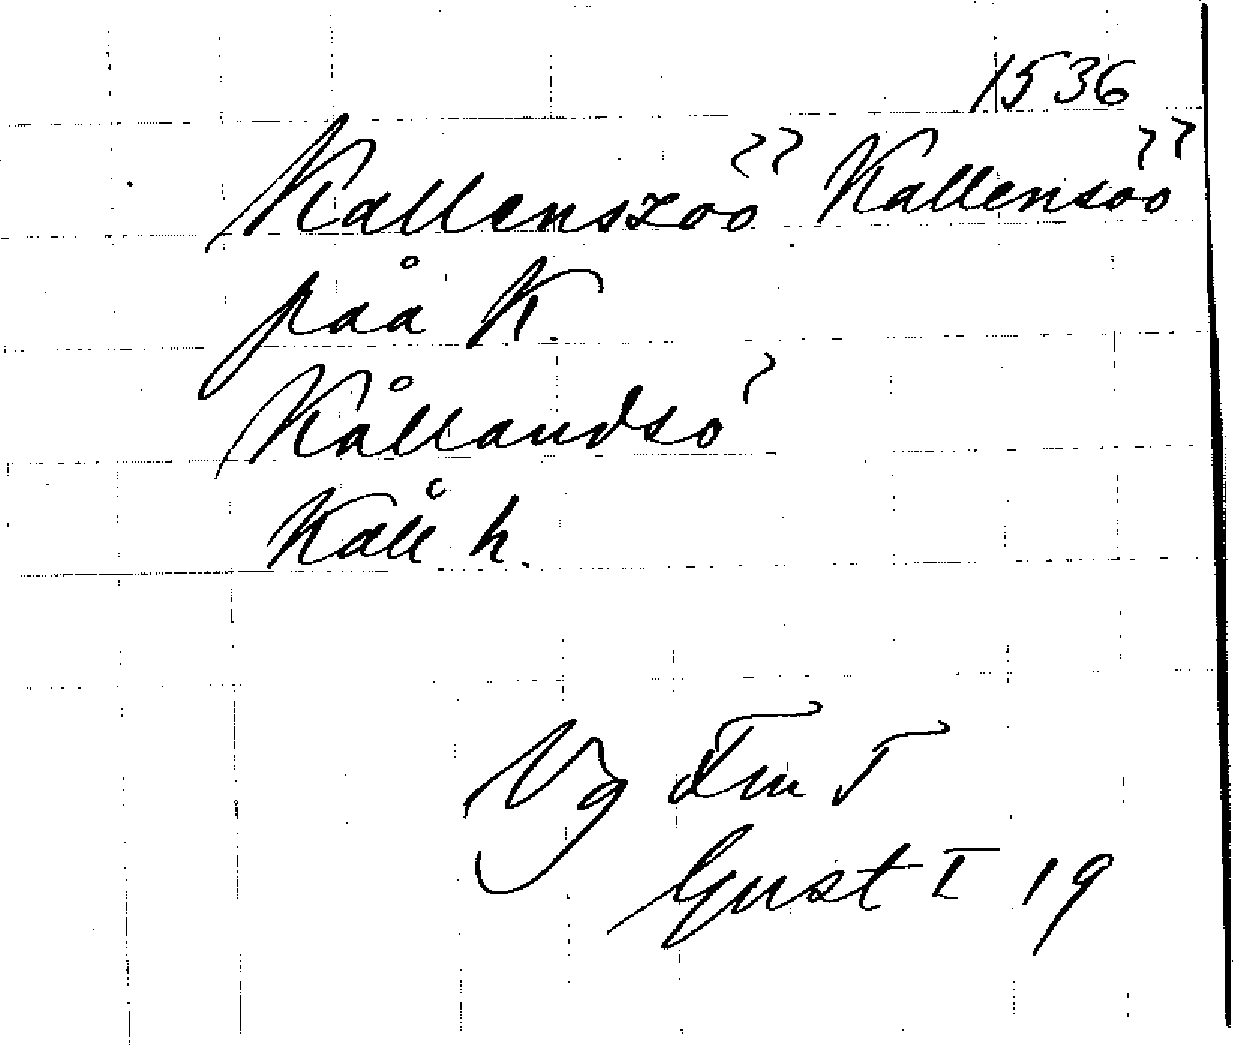 1536
Kallenszöö Kallensöö
på K.
Kållandsö
Kåll h.
Vg Fm T
Gust I 19